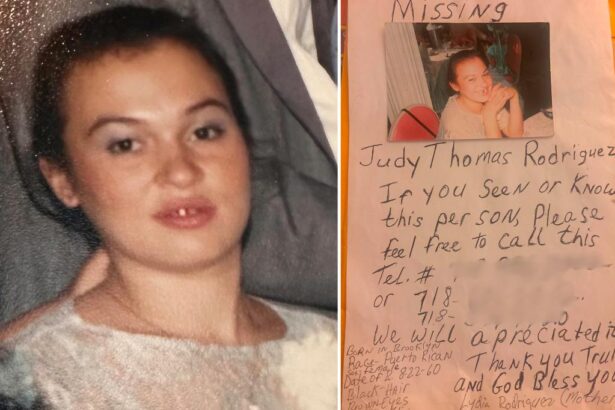 Missing
Judy Thomas Rodriguez
If you Seen or Know
this person, Please
feel free to call this
Tel. #
or 718-
718-
We Will apréciated it
Thank you Truly
and God Bless you
Lydia Rodriguez (Mother
Born in Brooklyn
Race-Puerto Rican
Female
Date of 822-60
Black-Hair
Brown-Eyes